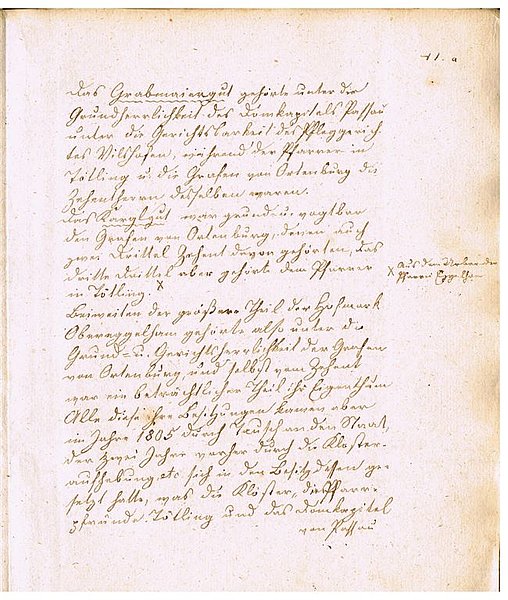 11. a
Das Grabmaiergut gehörte unter die
Grundherrlichkeit des Domkapitels Passau
unter die Gerichtsbarkeit des Pfleggerich
tes Vilshofen, während der Pfarrer in
Tötling u. die Grafen von Ortenburg die
Zehentherrn desselben waren.
Das Karglgut war grund- u. vogtbar
den Grafen von Ortenburg, denen auch
zwei Drittel Zehent davon gehörten, das
dritte Drittel aber gehörte dem Pfarrer
in Tötling. x
x Aus dem Urbar der
Pfarrei Eggelham
Beiweiten der größere Theil der Hofmark
Obereggelham gehörte also unter die
Grund- u. Gerichtsherrlichkeit der Grafen
von Ortenburg und selbst vom Zehent
war ein beträchtlicher Theil ihr Eigenthum
Alle diese ihre Besitzungen kamen aber
im Jahre 1805 durch Tausch an den Staat,
der zwei Jahre vorher durch die Kloster-
aufhebung etc sich in den Besitz dessen ge
setzt hatte, was die Klöster, die Pfarr-
pfründe Tötling und das Domkapitel
von Passau